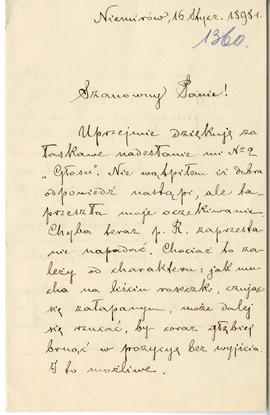 Niemirów, 16 Stycz. 1898 r.
1360.
Szanowny Panie!
Uprzejmie dziękuję za
łaskawe nadesłanie mi No 2
„Głosu". Nie wątpiłem iż dobra
odpowiedź nastąpi, ale ta
przeszła moje oczekiwanie.
Chyba teraz p. R. zaprzesta-
nie napadać. Chociaż to za-
leży od charakteru: jak mu-
cha na liściu roseczki, czując
się załapanym, może dalej
się rzucać, by coraz głębiej
brnąć w pozycyę bez wyjścia.
I to możliwe.